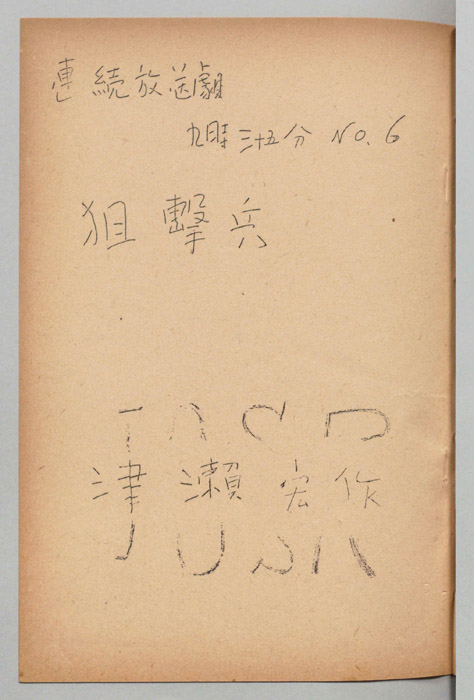 連続放送劇
九時三十五分 NO.6
狙撃兵
JOSR
津瀬宏作